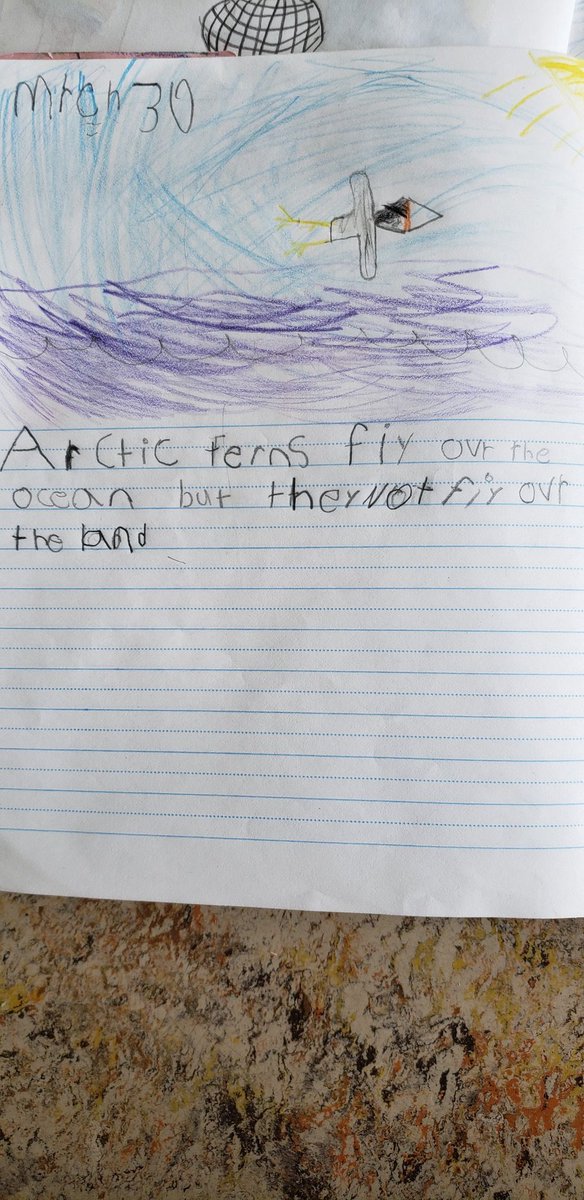 Mrch 30
Arctic Terns fly ovr the
ocean but they not fly ovr
the land